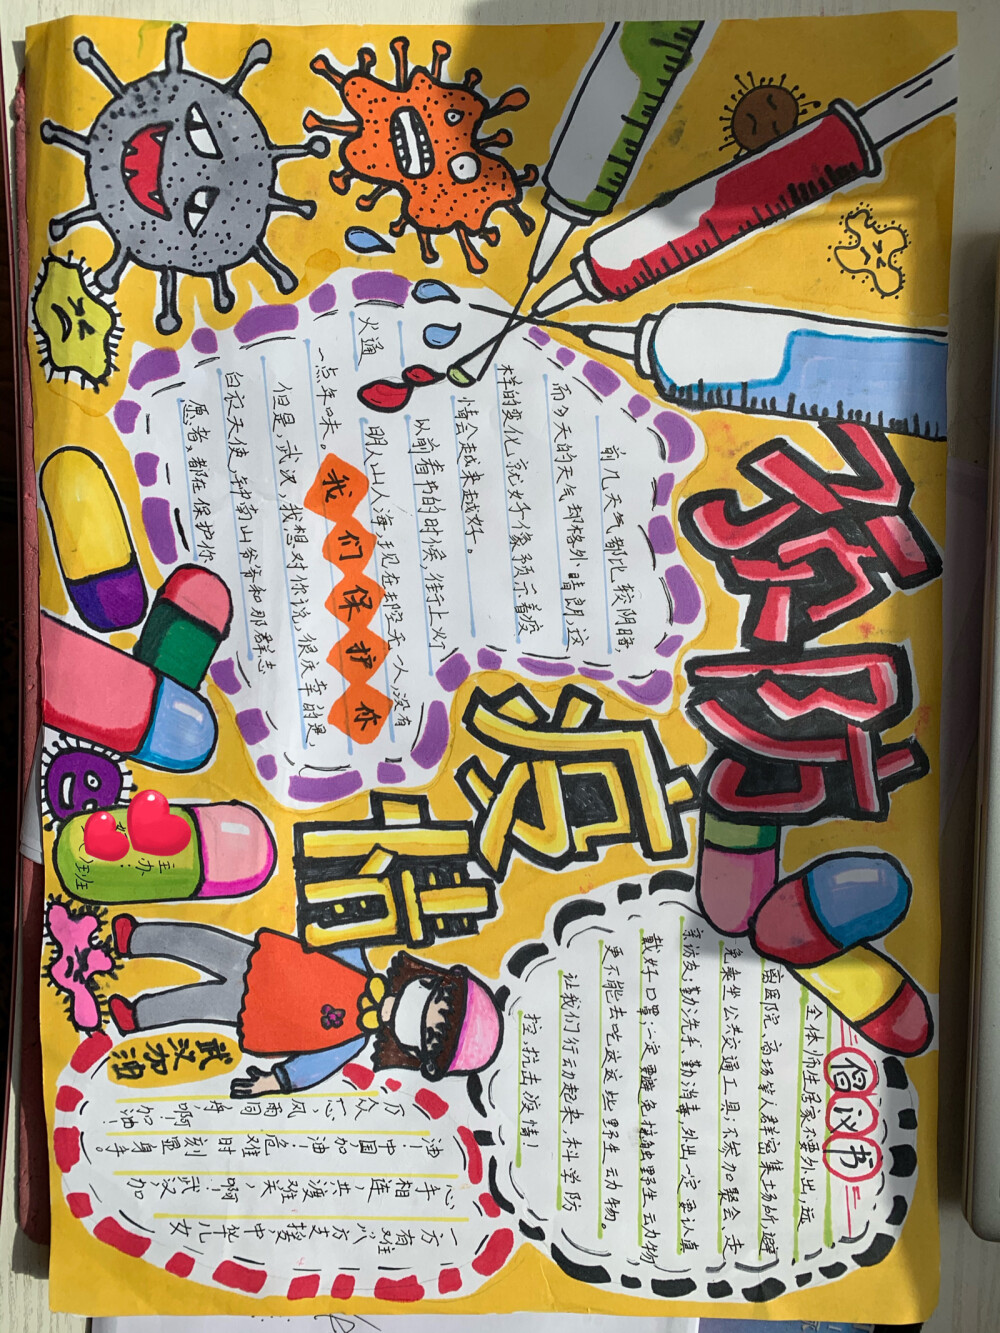 预防
疫情
我们保护你
前几天气都比较阴暗
而今天的天气却格外晴朗,这
样的变化,就好像预示着疫
情会越来越好。
以前看书的时候,街上灯
火通明人山人海,现在却空无一人,没有
一点年味。
但是,武汉,我想对你说,很庆幸的是,
白衣天使,钟南山爷爷和那群志
愿者,都在保护你
倡议书
全体师生居家不要外出,远
离医院、商场等人群密集场所,避
免乘坐公共交通工具;不参加聚会、走
亲访友、勤洗手、勤消毒,外出一定要认真
戴好口罩,一定要避免接触野生动物
更不能去吃这这些野生动物。
让我们行动起来,科学防
控,抗击疫情!
武汉加油
一方有难
八方支援,中华儿女
心手相连,共渡难
关,啊!武汉加
油!中国加油!危难
时刻显身手。
万众一心,风雨同舟
啊!加油!
主办: